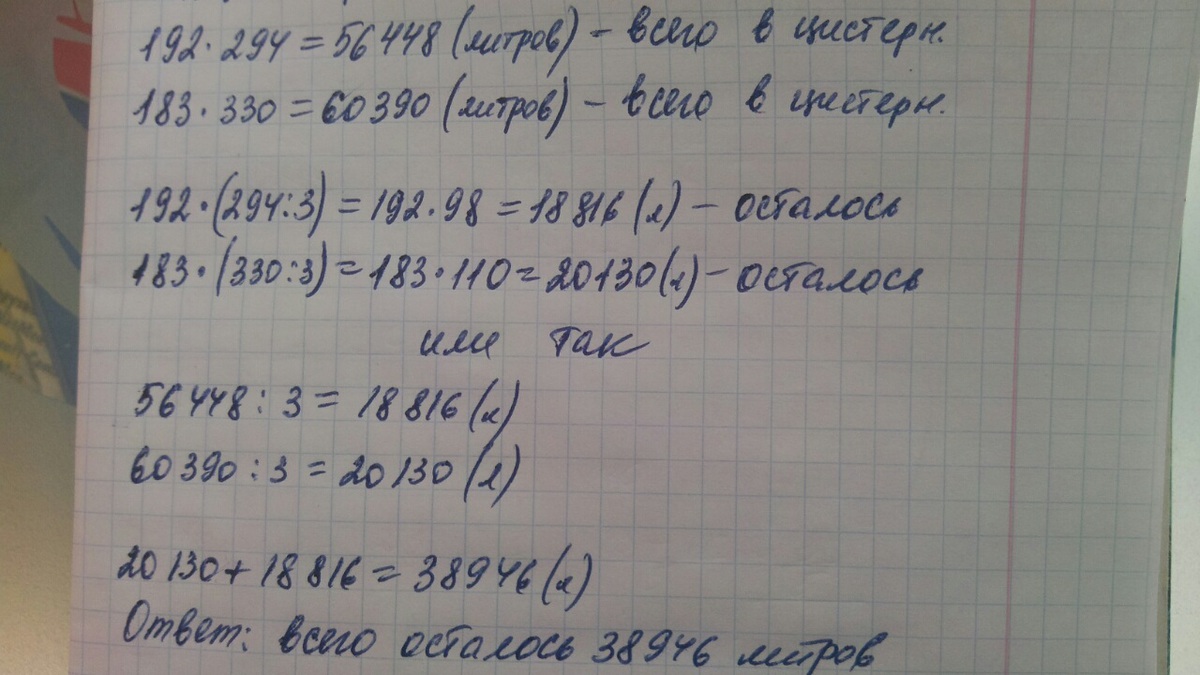 192·294=56448 (литров) - всего в цистерн.
183·330=60390 (литров) - всего в цистерн.
192·(294:3)=192·98=18816 (л) - осталось
183·(330:3)=183·110=20130 (л) - осталось
или так
56448:3=18816 (л)
60390:3=20130 (л)
20130+18816=38946 (л)
Ответ: всего осталось 38946 литров